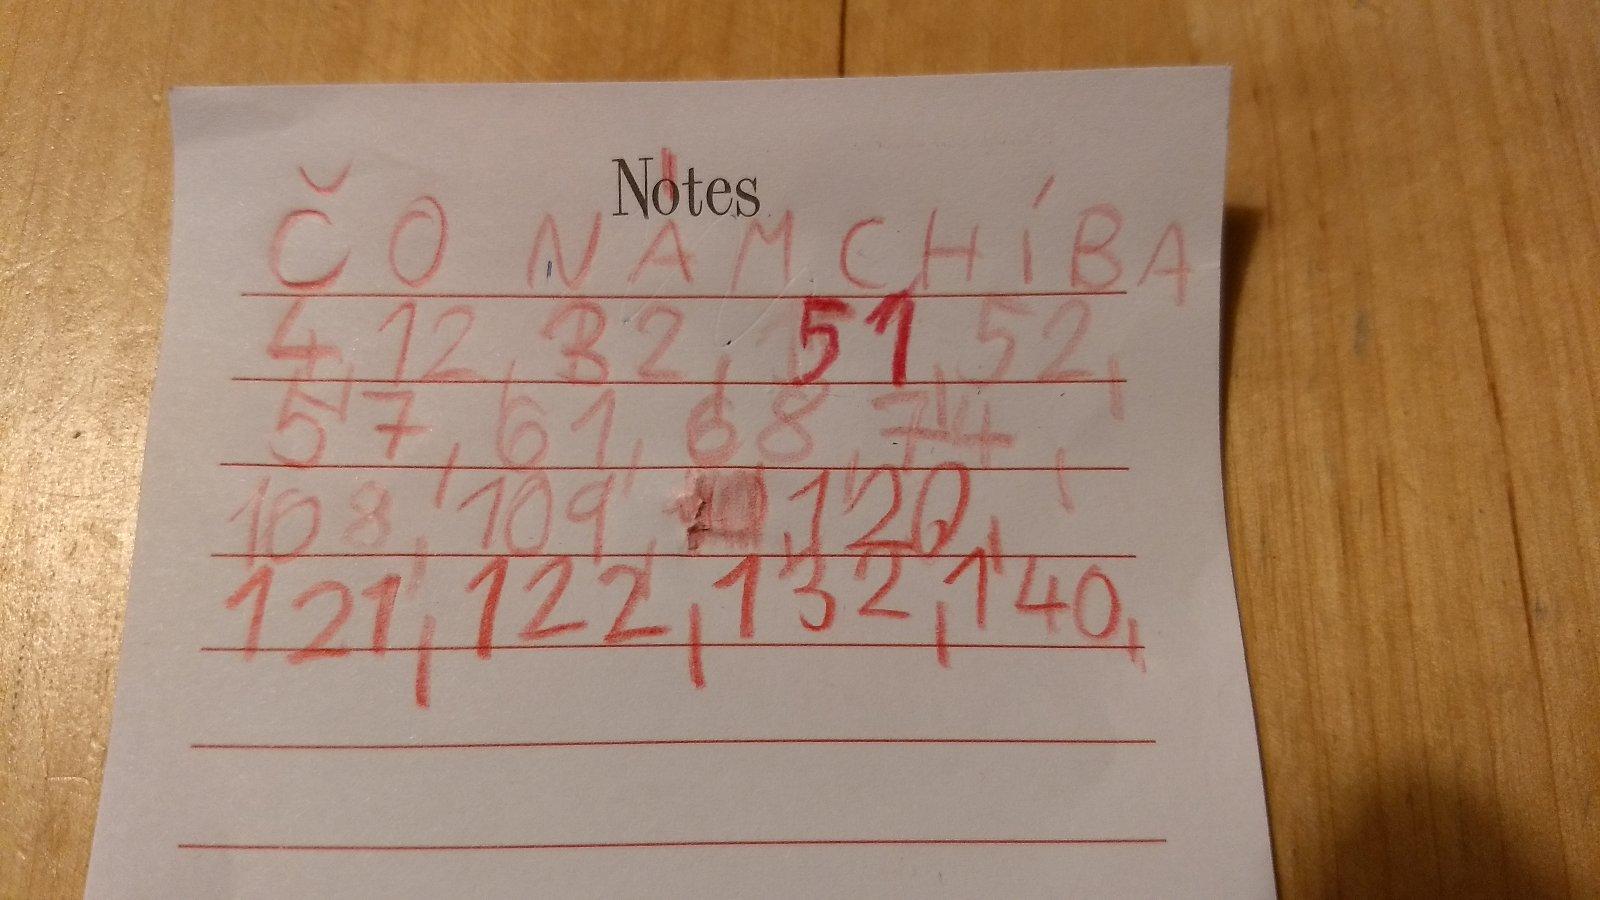 Notes
ČO NÁM CHÍBA
4, 12, 32, 51, 52,
57, 61, 68, 74,
108, 109, 120,
121, 122, 132, 140,